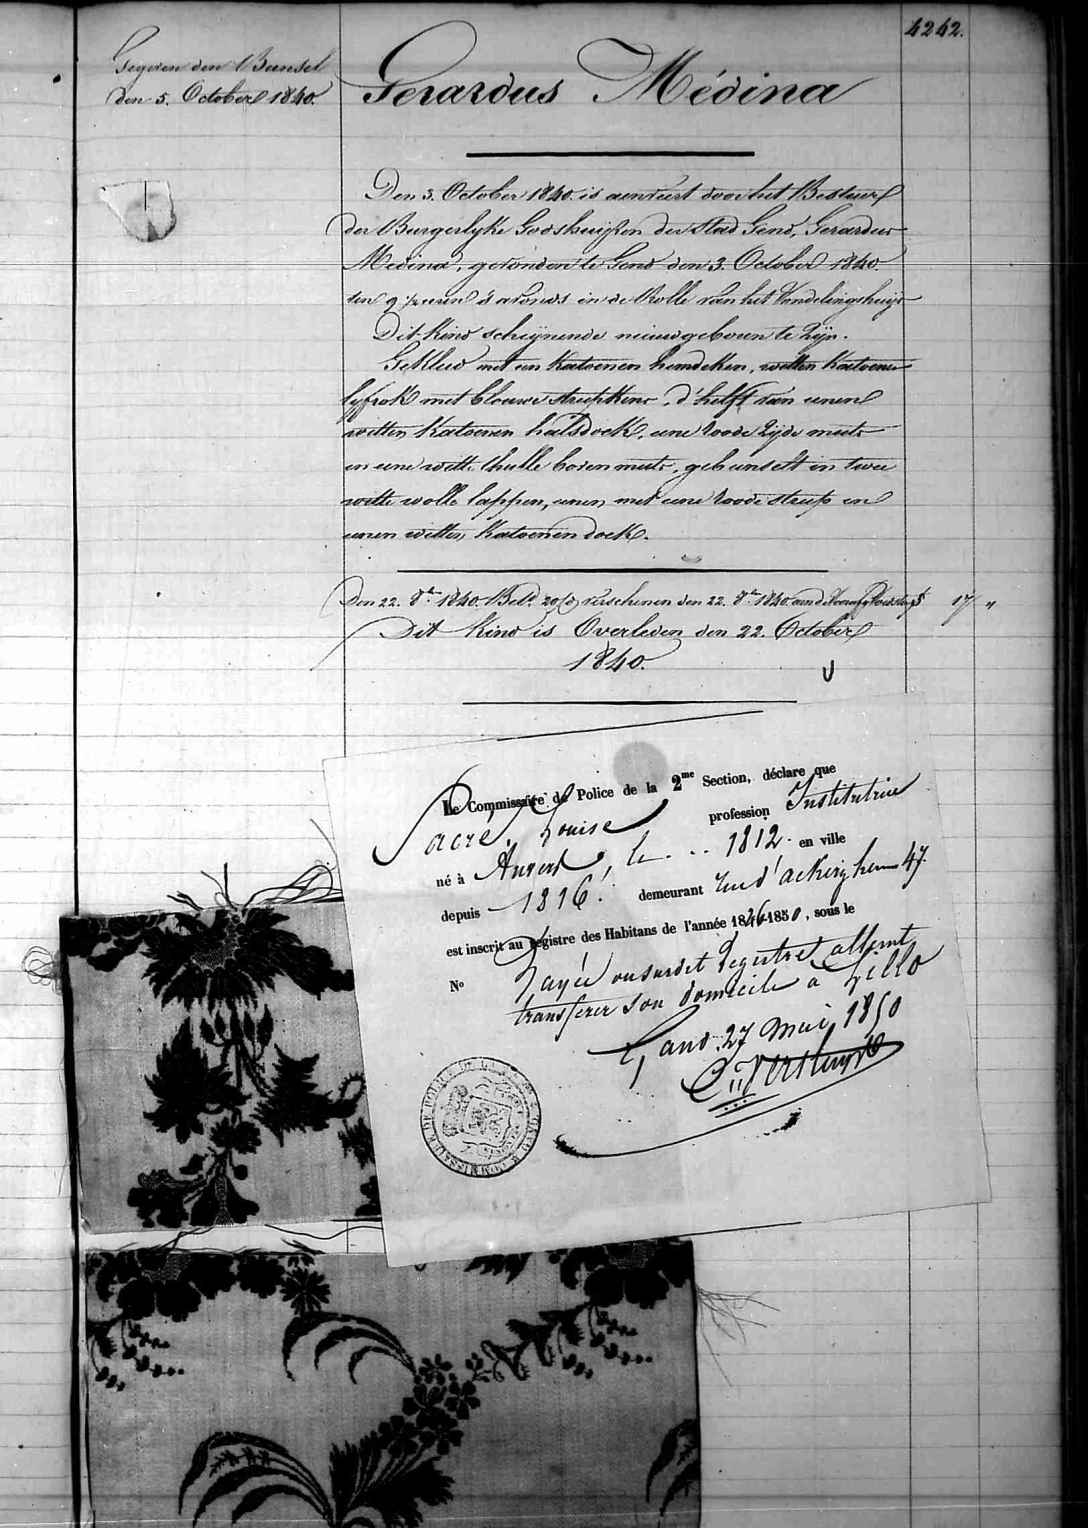 4242.
Gegeven den Bunsel
den 5. October 1840.
Gerardus Médina
Den 3. October 1840. is aenveirt door het Bestuur
der Burgerlyke Godshuizen der stad Gend, Gerardus
Medina, gevonden te Gend den 3. October 1840.
ten 9 uren 's avonds in de Rolle van het Vondelingshuijs
Dit kind schijnende nieuwgeboren te zijn.
Gekleed met een katoenen hemdeken, witten katoenen
lyfrok met blouwe streepkens, d'helft van eenen
witten katoenen halsdoek, eene roode zijde muts
en eene witte thulle bovenmuts, gebunselt in twee
witte wolle lappen, eenen met eene roode streep en
eenen witten katoenen doek.
Den 22. 8.re 1840. verschenen den 22. 8.re 1840. 17 "
Dit kind is Overleden den 22. October
1840.
Le Commissaire de Police de la 2me Section, déclare que
Sacré, Louise profession Institutrice
né à Anvers, le .. 1812. en ville
depuis 1816. demeurant rue d'ackerghem 47.
est inscrit au registre des Habitans de l'année 1846-1850, sous le
No Rayée du susdit registre allant
transférer son domicile à Lillo
Gand 27 mai 1850
COMMISSAIRE DE POLICE DE LA